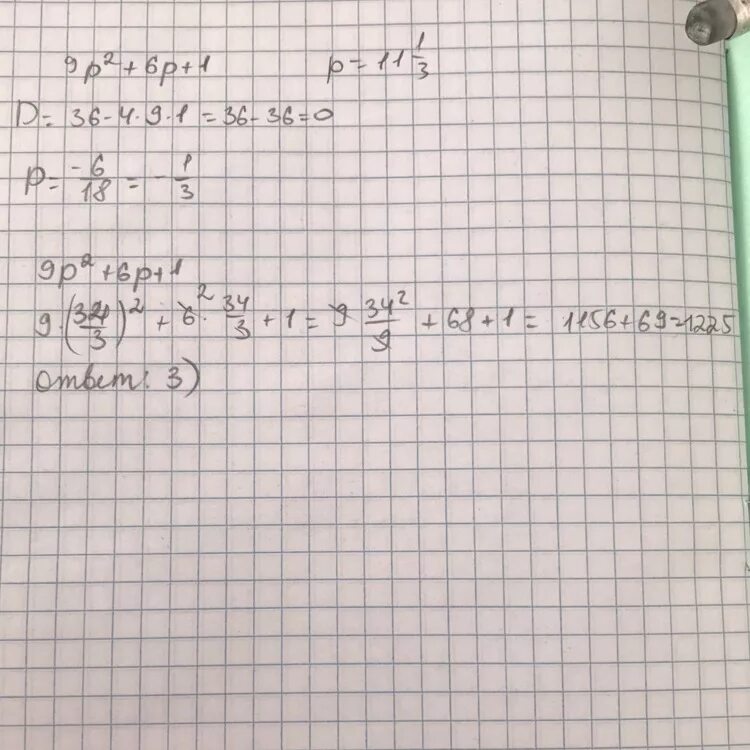 9p² + 6p + 1    p = 11 1/3
D = 36 - 4 · 9 · 1 = 36 - 36 = 0
p = -6/18 = - 1/3
9p² + 6p + 1
9 · (34/3)² + 6² · 34/3 + 1 = 9 34²/9 + 68 + 1 = 1156 + 69 = 1225
ответ: 3)